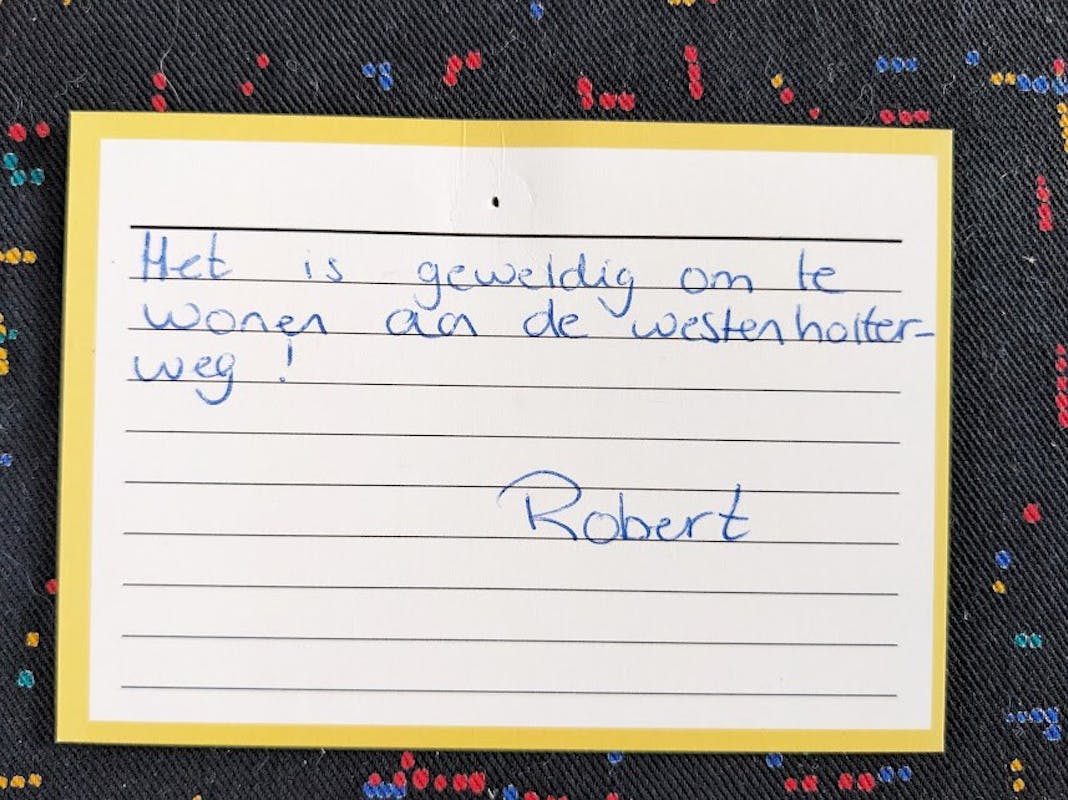 Het is geweldig om te
wonen aan de westenholter-
weg!
Robert